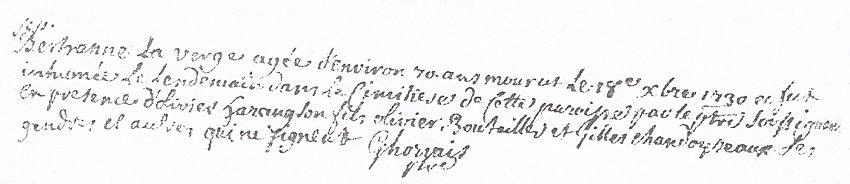 Bertranne La verge agée d'environ 70 ans mourut le 18e xbre 1730 et fut
inhumée le lendemain dans le Cimitiere de cette paroisse par le ptre soussigné
en presence d'olivier harang son fils olivier Boutailler et Gilles chandoyseaux ses
gendres et autres qui ne signent